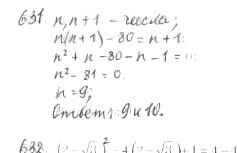 631 n, n+1 - числа;
n(n+1) - 80 = n+1;
n² + n - 80 - n - 1 = 0;
n² - 81 = 0
n = 9;
Ответ: 9 и 10.
632